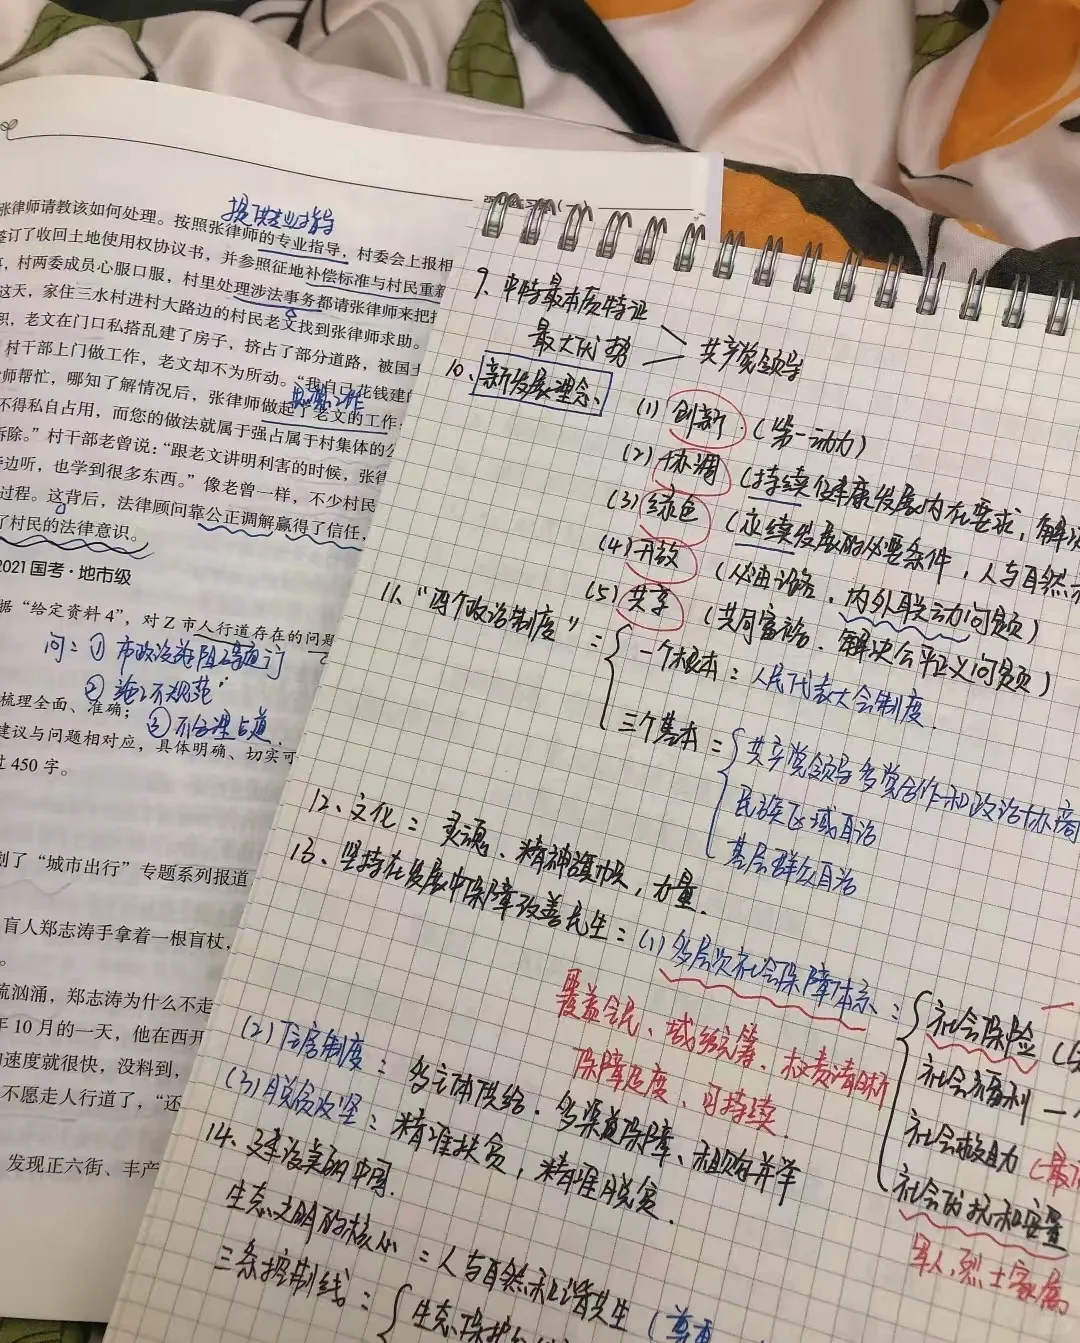 张律师请教该如何处理。按照张律师的专业指导，村委会上报相
签订了收回土地使用权协议书，并参照征地补偿标准与村民重新
村两委成员心服口服，村里处理涉法事务都请张律师来把
这天，家住三水村进村大路边的村民老文找到张律师求助。
积，老文在门口私搭乱建了房子，挤占了部分道路，被国
村干部上门做工作，老文却不为所动。“我自己花钱建
师帮忙，哪知了解情况后，张律师做起了老文的工作，
不得私自占用，而您的做法就属于强占属于村集体的公
拆除。”村干部老曾说：“跟老文讲明利害的时候，张律
旁边听，也学到很多东西。”像老曾一样，不少村民
过程。这背后，法律顾问靠公正调解赢得了信任，
了村民的法律意识。
2021国考·地市级
据“给定资料4”，对Z市人行道存在的问题
问：① 市政设施阻碍通行
② 施工不规范
③ 不合理占道.
梳理全面、准确；
建议与问题相对应，具体明确、切实可
过450字。
划了“城市出行”专题系列报道
盲人郑志涛手拿着一根盲杖，
流汹涌，郑志涛为什么不走
年10月的一天，他在西开
速度就很快，没料到，
不愿走人行道了，“还
发现正六街、丰产
9、中特最本质特征
最大优势
共产党领导
10、新发展理念、
(1) 创新.（第一动力）
(2) 协调（持续健康发展内在要求，解决
(3) 绿色（永续发展的必要条件，人与自然
(4) 开放（必由之路，内外联动问题）
(5) 共享（共同富裕、解决公平正义问题）
11、“四个政治制度” =
一个根本：人民代表大会制度.
三个基本 =
共产党领导多党合作和政治协商
民族区域自治
基层群众自治
12、文化：灵魂、精神旗帜，力量.
13、坚持在发展中保障改善民生：(1) 多层次社会保障体系：
覆盖全民、城乡统筹、权责清晰
保障适度、可持续.
社会保险
社会福利
社会救助
社会优抚和安置
军人，烈士家属
(2) 住房制度：多主体供给. 多渠道保障、租购并举
(3) 脱贫攻坚：精准扶贫，精准脱贫.
14、建设美丽中国.
生态文明的核心 = 人与自然和谐共生
三条控制线：
生态保护